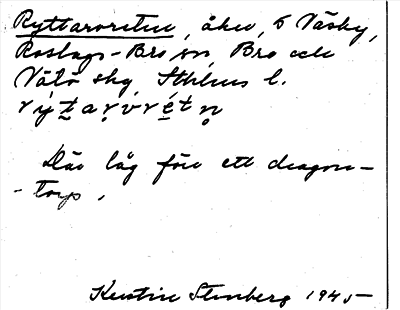 Ryttarvreten, åker, 5 Väsby,
Roslags-Bro sn, Bro och
Vätö skg, Sthlms l.
rýtarvrétn
Där låg förr ett dragon-
torp.
Kerstin Stenberg 1945